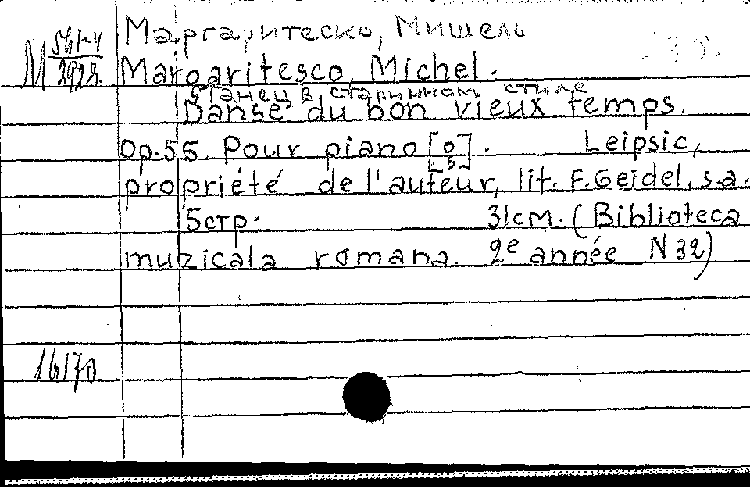 Маргаритеско, Мишель
М
Margaritesco, Michel.
Танец в старинном стиле
Danse du bon vieux temps.
Op.55. Pour piano [o]. Leipsic,
propriété de l'auteur, lit. F. Geidel, s.a.
5 стр. 31 см. (Biblioteca
muzicala romana. 2e année N 32)
16170